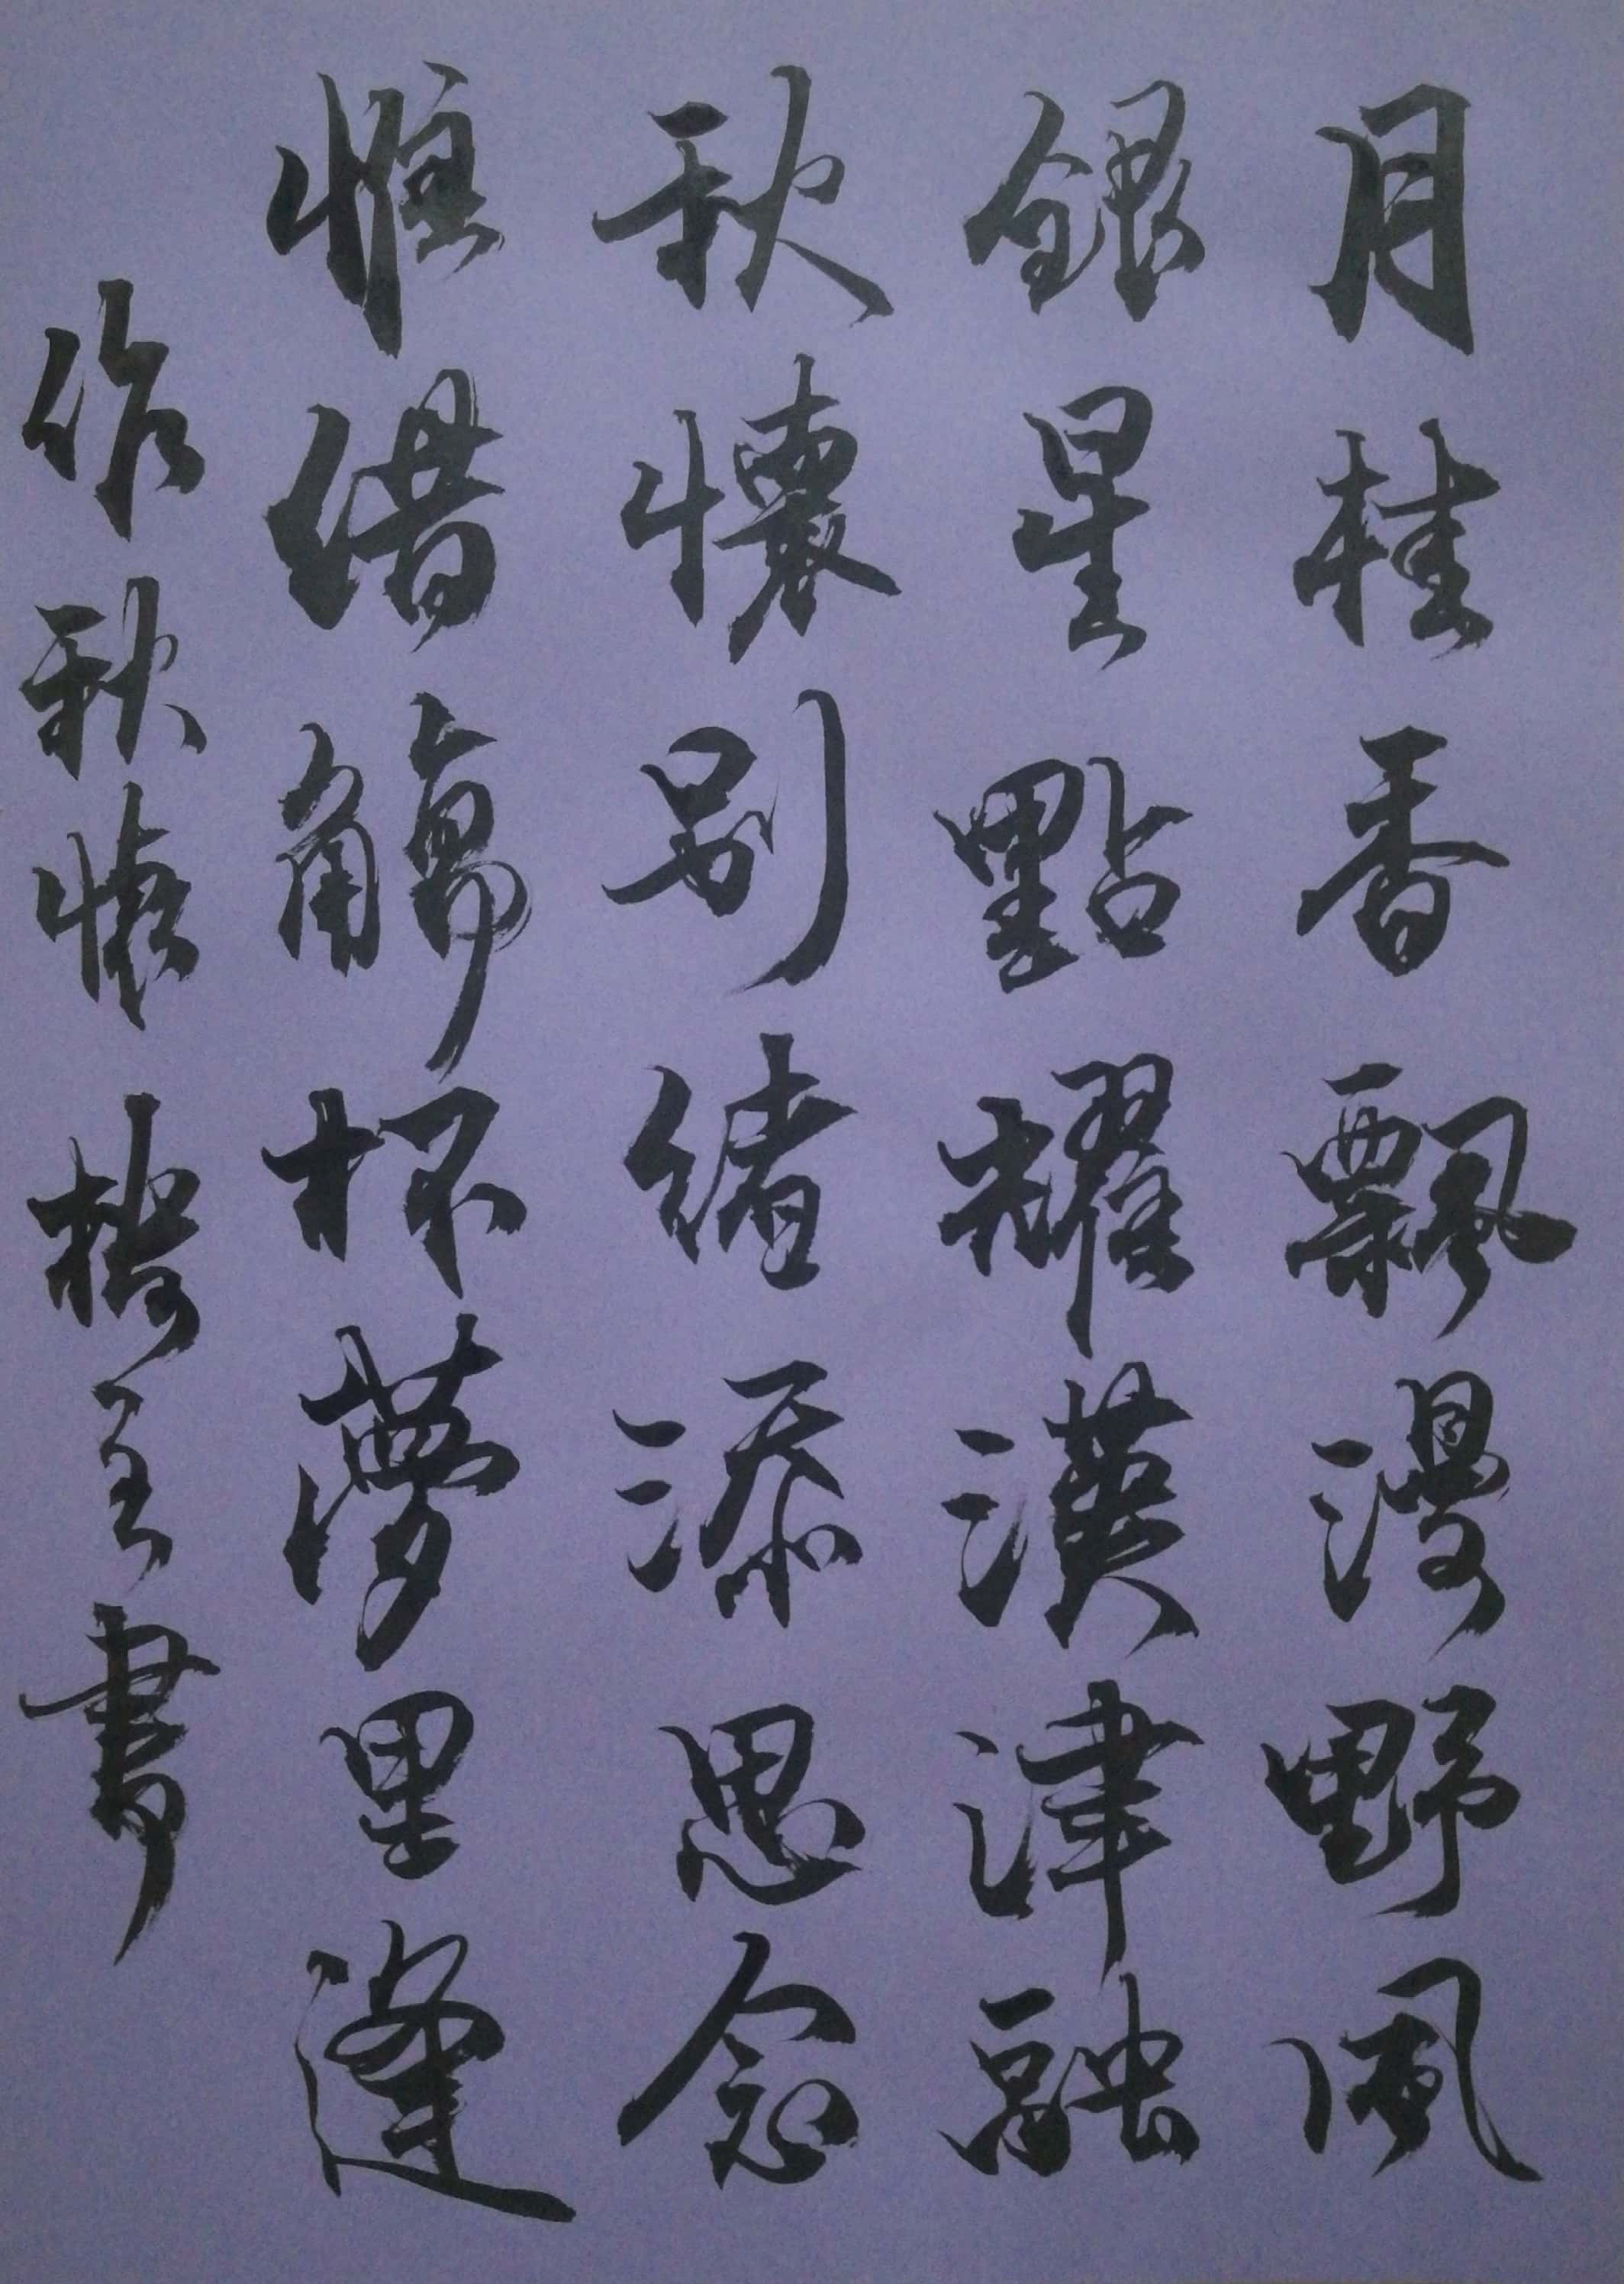 月桂香飄漫野風
銀星點耀漢津融
秋懷別緒添思念
惟借觴杯夢里逢
作秋懷
書